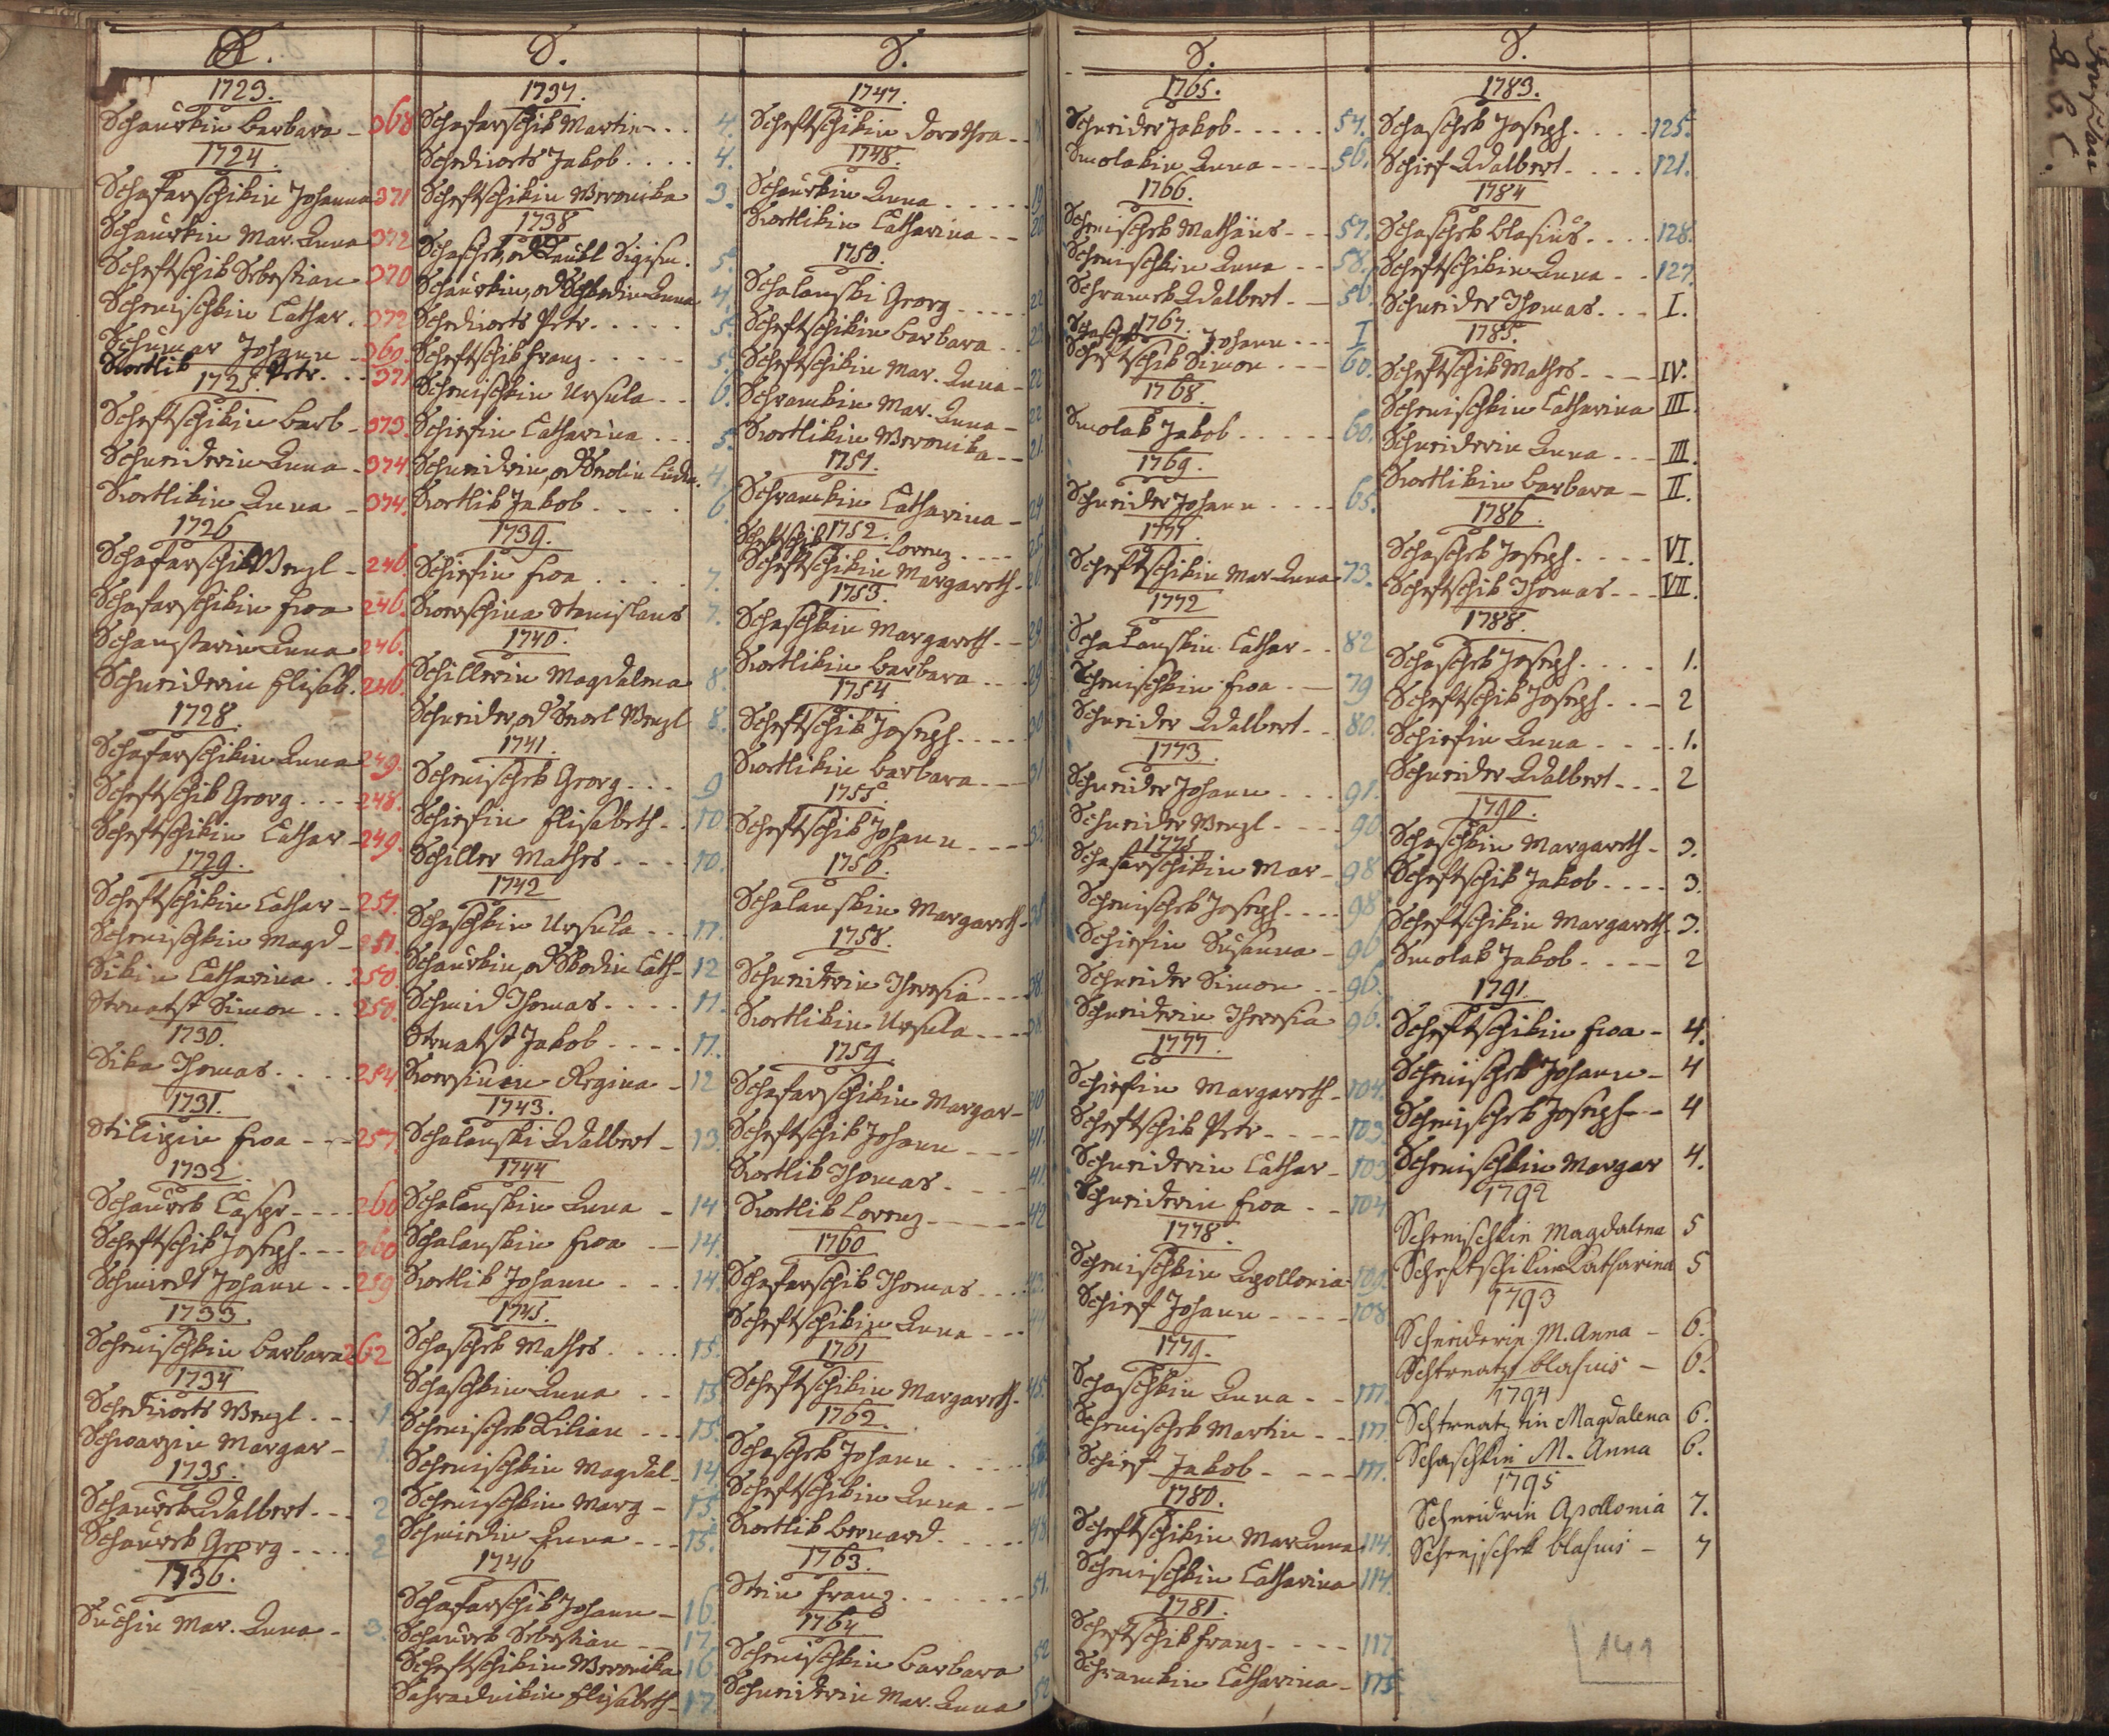 S.
1723.
Schaurkin Barbara - 368
1724.
Schafarschikin Johanna 371
Schaurkin Mar. Anna 372
Scheftschik Sebestian 370
Schenischkin Cathar. 372
Schumar Johann - 360.
Swortlik Petr. - 371
1725.
Scheftschikin Barb - 373.
Schneiderin Anna - 374
Swortlikin Anna - 374.
1726
Schafarschik Wenzl - 246.
Schafarschikin Eva 246.
Schanstarin Anna 246.
Schneiderin Elisab. 246.
1728.
Schafarschikin Anna 249.
Scheftschik Georg - - - 248.
Scheftschikin Cathar - 249.
1729.
Scheftschikin Cathar - 251.
Schenischkin Magd - 251.
Sikin Catharina . . 250.
Strnatst Simon . . 250.
1730.
Sika Thomas . . . . 254
1731.
Stilipin Eva - - - 257.
1732.
Schaurek Caspr - - - - 260
Scheftschik Joseph - - - 260
Schmiedt Johann - - 259
1733.
Schenischkin Barbara 262
1734
Schediworts Wenzl . - - 1
Schwarzin Margar - 1.
1735.
Schaurek Adalbert - - - 2
Schaurek Georg - - - - 2
1736.
Suchin Mar. Anna - 3.
S.
1737.
Schafarschik Martin - . . 4.
Schediworts Jakob . . . . 4.
Scheftschikin Weronika 3.
1738
Schaschek, od Taubl Sigism. 5.
Schaurkin, od Anna 4.
Schediworts Petr . . . . . 5.
Scheftschik Franz - - - - - 5.
Schenischkin Ursula . . 6.
Schiefin Catharina . . . 5
Schneidrin, od 4.
Swortlik Jakob . . . . 6.
1739.
Schiefin Eva . . . . . 7.
Sworschina Stanislaus 7.
1740.
Schillerin Magdalena 8.
Schneider, od Wenzl 8.
1741.
Schenischek Georg . . . . 9
Schiefin Elisabeth . . 10.
Schiller Mathes - - - - 10.
1742
Schaschkin Ursula . . . 11.
Schaurkin, od Skodin Cath - 12
Schmid Thomas . . . . 11.
Strnatst Jakob - - - - 11.
Regina - 12
1743.
Schalanski Adalbert - 13.
1744
Schalanskin Anna - 14
Schalanskin Eva - - 14.
Swortlik Johann . . . 14.
1745.
Schaschek Mathes . . . . 15.
Schaschkin Anna . . 15.
Schenischek Kilian - - - 15.
Schenischkin Magdal - 14
Schenischkin Marg - 15.
Schmiedin Anna - - - 15.
1746
Schafarschik Johann - 16.
Schaurek Sebestian - - 17
Scheftschikin Weronika 16.
Sahradnikin Elisabeth - 17.
S.
1747.
Scheftschikin Dorothea - -
1748.
Schaurkin Anna . . . . . 19
Swortlikin Catharina - - 20
1750.
Schalanski Georg . . . . . 22
Scheftschikin Barbara . . 23
Scheftschikin Mar. Anna - 22
Schramkin Mar. Anna - 22
Swortlikin Weronika - - 21.
1751.
Schramkin Catharina - 24
1752.
Scheftschik Lorenz . . . . 25.
Scheftschikin Margareth - 26.
1753.
Schaschkin Margareth - - 29.
Swortlikin Barbara . . . 29
1754.
Scheftschik Joseph - - - - 30
Swortlikin Barbara - - - 31
1755.
Scheftschik Johann - - - - 33.
1756.
Schalanskin Margareth -
1758.
Schneiderin Theresia - - - - 38.
Swortlikin Ursula - - - - 38.
1759.
Schafarschikin Margar - 40
Scheftschik Johann - - - 41.
Swortlik Thomas . . . . 41.
Swortlik Lorenz - - - - - 42
1760
Schafarschik Thomas . . . . 43.
Scheftschikin Anna - - - 44
1761
Scheftschikin Margareth - 45.
1762.
Schaschek Johann . . . . .
Scheftschikin Anna . - 48.
Swortlik Bernard . . . . . 48
1763.
Stein Franz . . . . . . . 51.
1764
Schenischkin Barbara 52
Schneiderin Mar. Anna 52
S.
1765.
Schneider Jakob . . . . . 57.
Smolakin Anna - - - - 56.
1766.
Schenischek Mathäus - - - 57.
Schenischkin Anna - - 58.
Schramek Adalbert - - 56.
1767.
Schaschek Johann - - - I
Scheftschik Simon - - - 60.
1768.
Smolak Jakob . . . . . . 60.
1769.
Schneider Johann . . . . 65.
1771.
Scheftschikin Mar Anna 73.
1772
Schalanskin Cathar - . 82
Schenischkin Eva - - 79
Schneider Adalbert - . 80.
1773.
Schneider Johann . . . . 91.
Schneider Wenzl . . . . 90
1775
Schafarschikin Mar - 98
Schenischek Joseph - - - - 98.
Schiefin Susanna - 96
Schneider Simon - - 96.
Schneiderin Theresia 96.
1777.
Schiefin Margareth - 104.
Scheftschik Petr - - - - 103.
Schneiderin Cathar - 103
Schneiderin Eva - - 104
1778.
Schenischkin Apollonia - 109.
Schief Johann - - - - 108
1779.
Schaschkin Anna - - 111.
Schenischek Martin - - 111.
Schief Jakob - - - - 111.
1780.
Scheftschikin Mar Anna 114.
Schenischkin Catharina 114.
1781.
Scheftschik Franz - - - - 117.
Schramkin Catharina - 115.
S.
1783.
Schaschek Joseph . . . . 125.
Schief Adalbert . . . . 121.
1784
Schaschek Blasius . . . . 128.
Scheftschikin Anna - . 127.
Schneider Thomas . . . I.
1785.
Scheftschik Mathes - - - - IV.
Schenischkin Catharina III.
Schneiderin Anna - - - III.
Swortlikin Barbara - II.
1786.
Schaschek Joseph . . . . VI.
Scheftschik Thomas - - - VII.
1788.
Schaschek Joseph . . . . 1.
Scheftschik Joseph . . - 2
Schiefin Anna - - - - 1.
Schneider Adalbert - - - 2
1790.
Schaschkin Margareth - 3.
Scheftschik Jakob - - - - 3.
Scheftschikin Margareth - 3.
Smolak Jakob - - - - 2
1791.
Scheftschikin Eva - 4.
Schenischek Johann - 4
Schenischek Joseph - - 4
Schenischkin Margar 4.
1792
Schenischkin Magdalena 5
Scheftschikin Katharina 5
1793
Schneiderin M. Anna - 6.
Schtrnatz blasius - 6.
1794
Schtrnatztin Magdalena 6.
Schaschkin M. Anna 6.
1795
Schneidrin Apollonia 7.
Schenischek blasius - 7
141